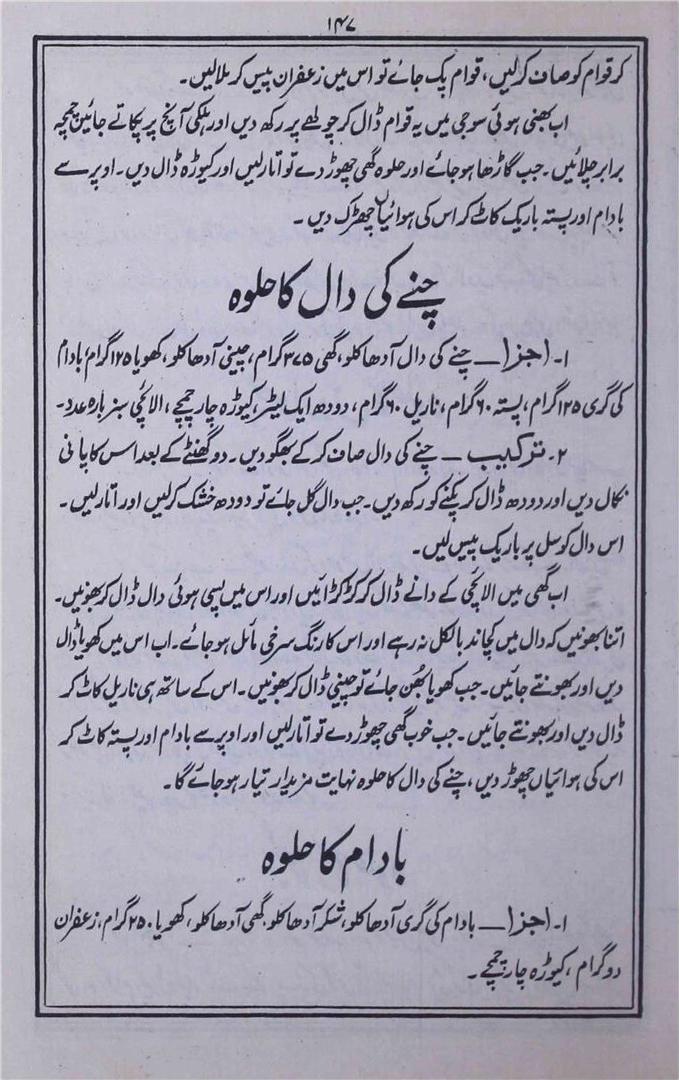 ۱۴۷
کر قوام کو صاف کر لیں، قوام پک جائے تو اس میں زعفران پیس کر ملا لیں۔
اب بھنی ہوئی سوجی میں یہ قوام ڈال کر چولھے پر رکھ دیں اور ہلکی آنچ پر پکاتے جائیں چمچہ
برابر چلائیں۔ جب گاڑھا ہو جائے اور حلوہ گھی چھوڑ دے تو اتار لیں اور کیوڑہ ڈال دیں۔ اوپر سے
بادام اور پستہ باریک کاٹ کر اس کی ہوائیاں چھڑک دیں۔
چنے کی دال کا حلوہ
۱۔ اجزا — چنے کی دال آدھا کلو، گھی ۳۷۵ گرام، چینی آدھا کلو، کھویا ۱۲۵ گرام، بادام
کی گری ۱۲۵ گرام، پستہ ۶۰ گرام، ناریل ۶۰ گرام، دودھ ایک لیٹر، کیوڑہ چار چمچے، الائچی سبز بارہ عدد۔
۲۔ ترکیب — چنے کی دال صاف کر کے بھگو دیں۔ دو گھنٹے کے بعد اس کا پانی
نکال دیں اور دودھ ڈال کر پکنے کو رکھ دیں۔ جب دال گل جائے تو دودھ خشک کر لیں اور اتار لیں۔
اس دال کو سل پر باریک پیس لیں۔
اب گھی میں الائچی کے دانے ڈال کر کڑکڑائیں اور اس میں پسی ہوئی دال ڈال کر بھونیں۔
اتنا بھونیں کہ دال میں کچاند بالکل نہ رہے اور اس کا رنگ سرخی مائل ہو جائے۔ اب اس میں کھویا ڈال
دیں اور بھونتے جائیں۔ جب کھویا بھُن جائے تو چینی ڈال کر بھونیں۔ اس کے ساتھ ہی ناریل کاٹ کر
ڈال دیں اور بھونتے جائیں۔ جب خوب گھی چھوڑ دے تو اتار لیں اور اوپر سے بادام اور پستہ کاٹ کر
اس کی ہوائیاں چھوڑ دیں، چنے کی دال کا حلوہ نہایت مزیدار تیار ہو جائے گا۔
بادام کا حلوہ
۱۔ اجزا — بادام کی گری آدھا کلو، شکر آدھا کلو، گھی آدھا کلو، کھویا ۲۵۰ گرام، زعفران
دو گرام، کیوڑہ چار چمچے۔